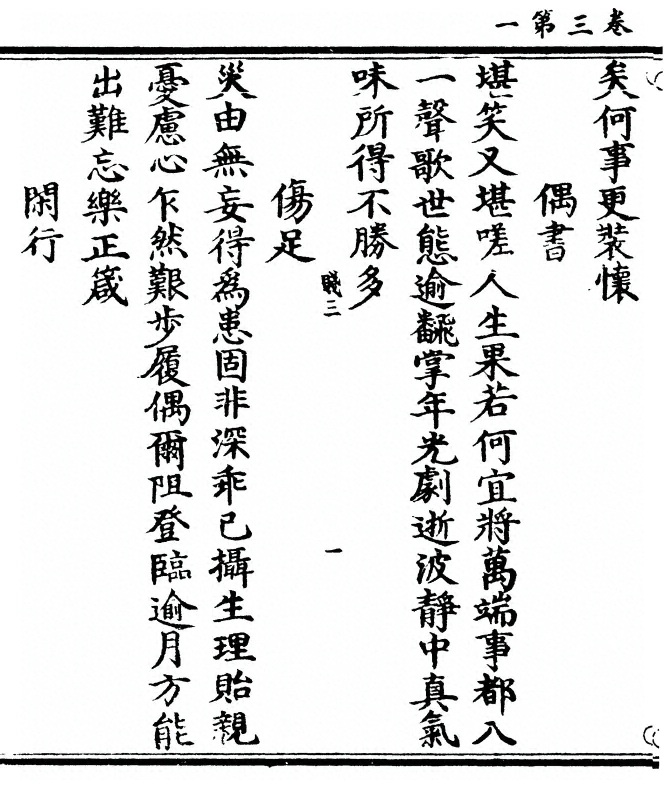 卷三第一
矣何事更裝懷
偶書
堪笑又堪嗟人生果若何宜將萬端事都八
一聲歌世態逾飜掌年光劇逝波靜中真氣
味所得不勝多
賤三
一
傷足
災由無妄得爲患固非深乖已攝生理貽親
憂慮心乍然艱步履偶爾阻登臨逾月方能
出難忘樂正箴
閑行